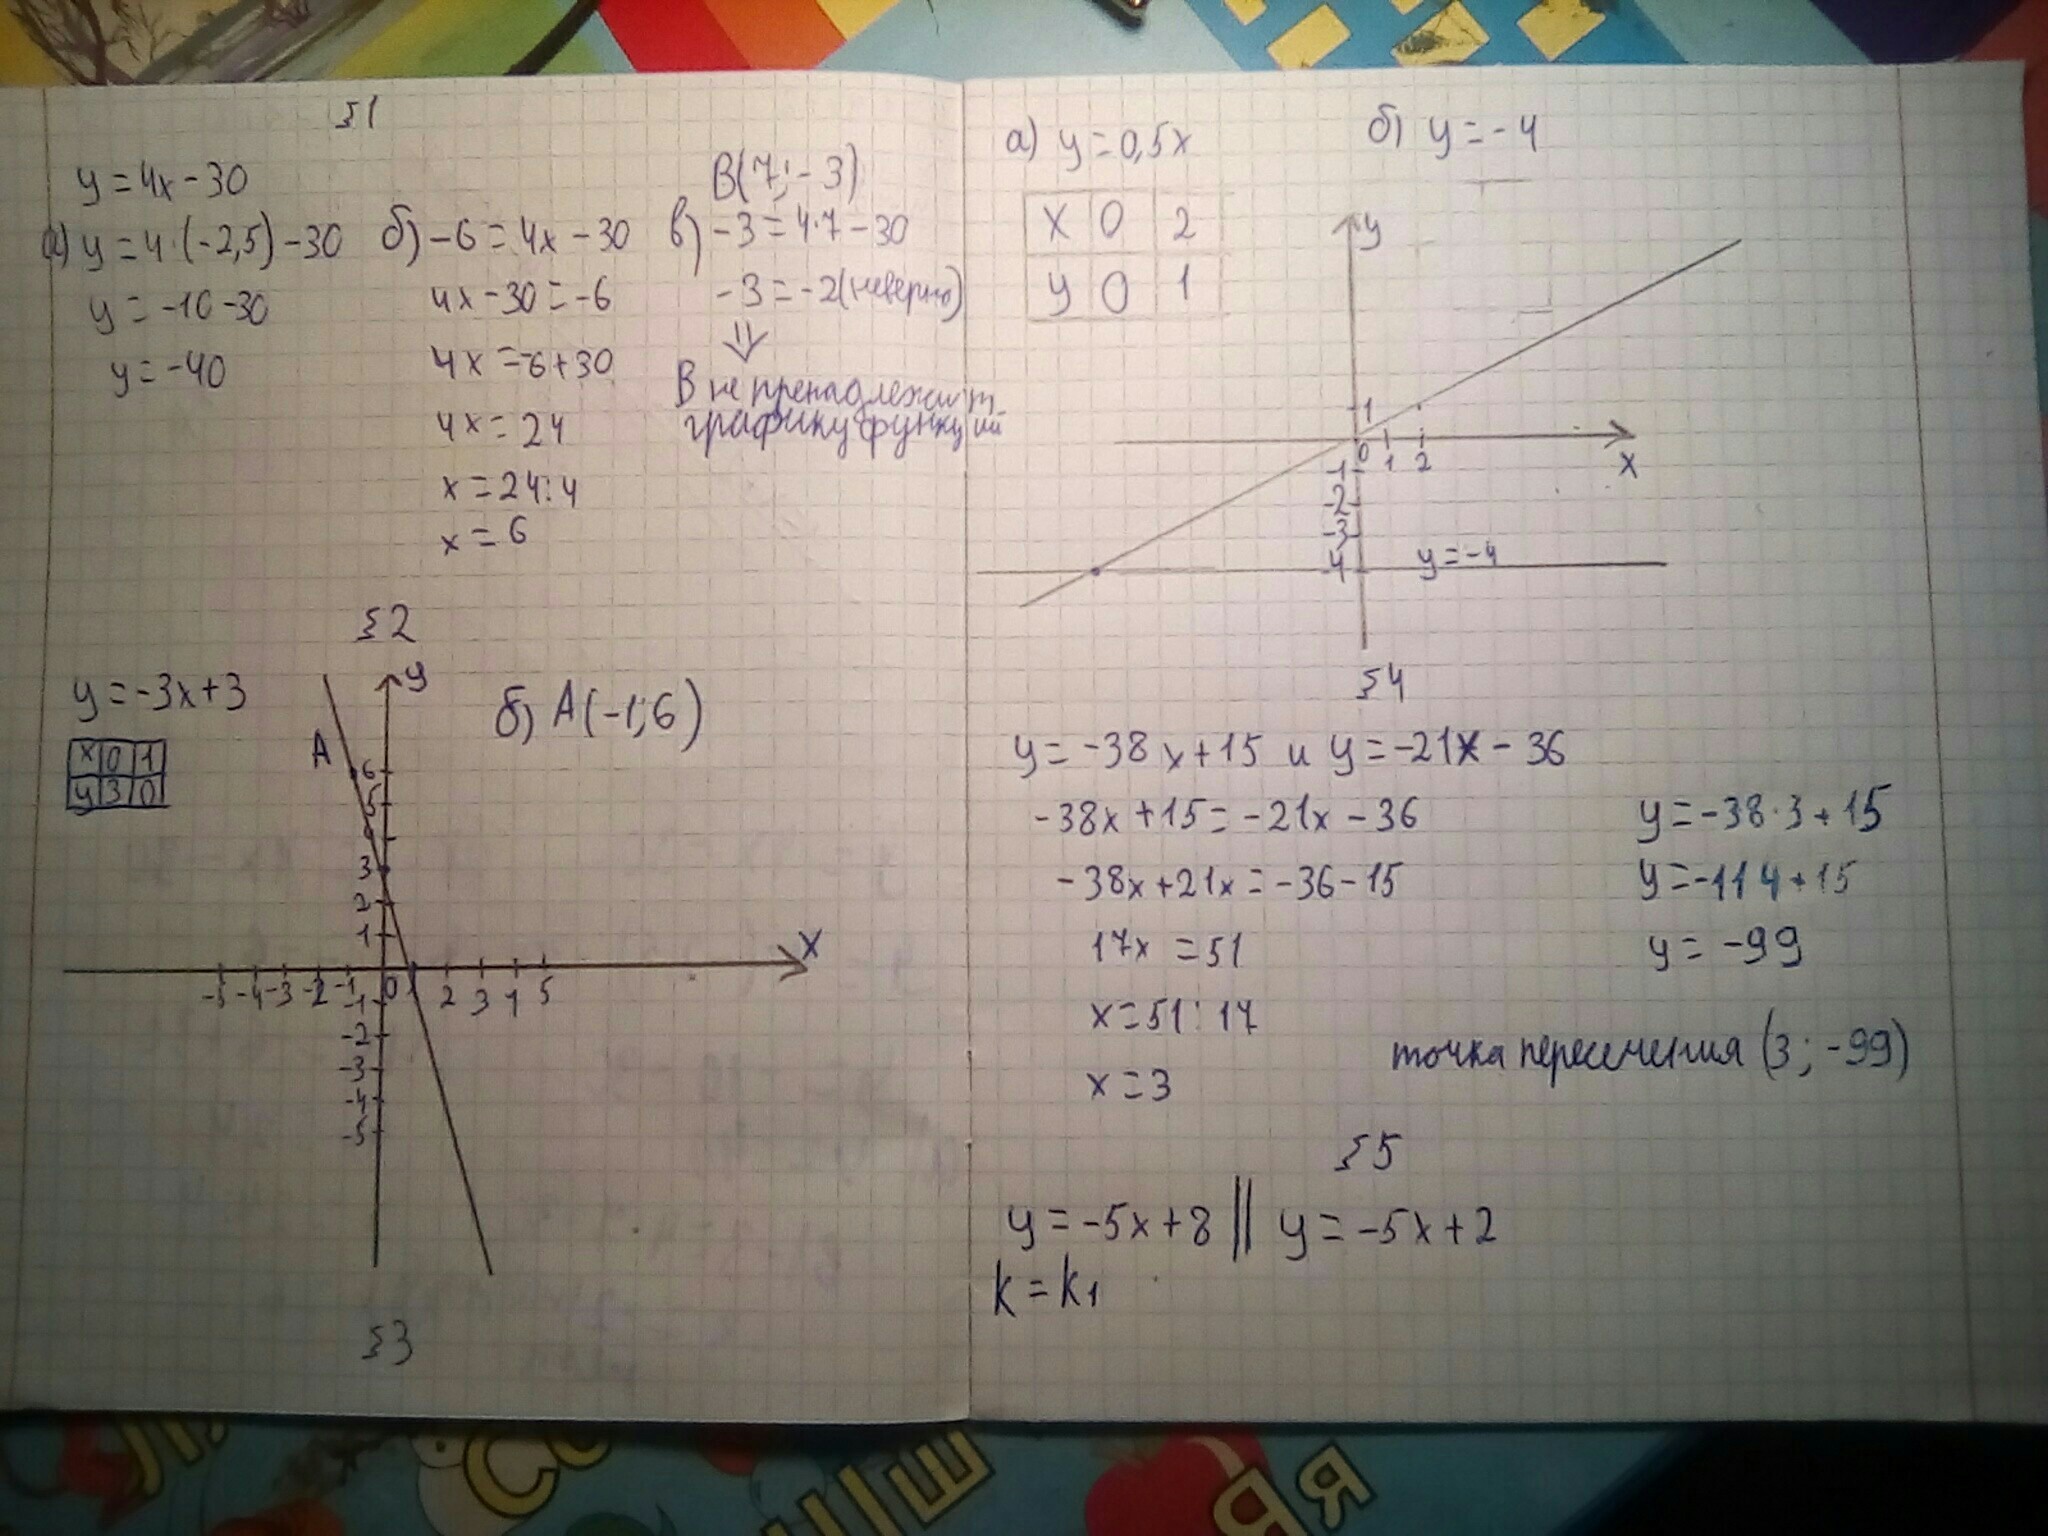 §1
y = 4x - 30
а) y = 4·(-2,5) - 30
y = -10 - 30
y = -40
б) -6 = 4x - 30
4x - 30 = -6
4x = -6 + 30
4x = 24
x = 24:4
x = 6
B(7; -3)
в) -3 = 4·7 - 30
-3 = -2 (неверно)
⇓
В не пренадлежит
графику функций
§2
y = -3x + 3
x 0 1
y 3 0
б) A(-1; 6)
A
y
6
5
4
3
2
1
x
-5 -4 -3 -2 -1 0 1 2 3 4 5
-1
-2
-3
-4
-5
§3
а) y = 0,5x
x 0 2
y 0 1
б) y = -4
y
1
0 1 2
x
-1
-2
-3
-4
y = -4
§4
y = -38x + 15 и y = -21x - 36
-38x + 15 = -21x - 36
-38x + 21x = -36 - 15
17x = 51
x = 51 : 17
x = 3
y = -38·3 + 15
y = -114 + 15
y = -99
точка пересечения (3; -99)
§5
y = -5x + 8 || y = -5x + 2
k = k1